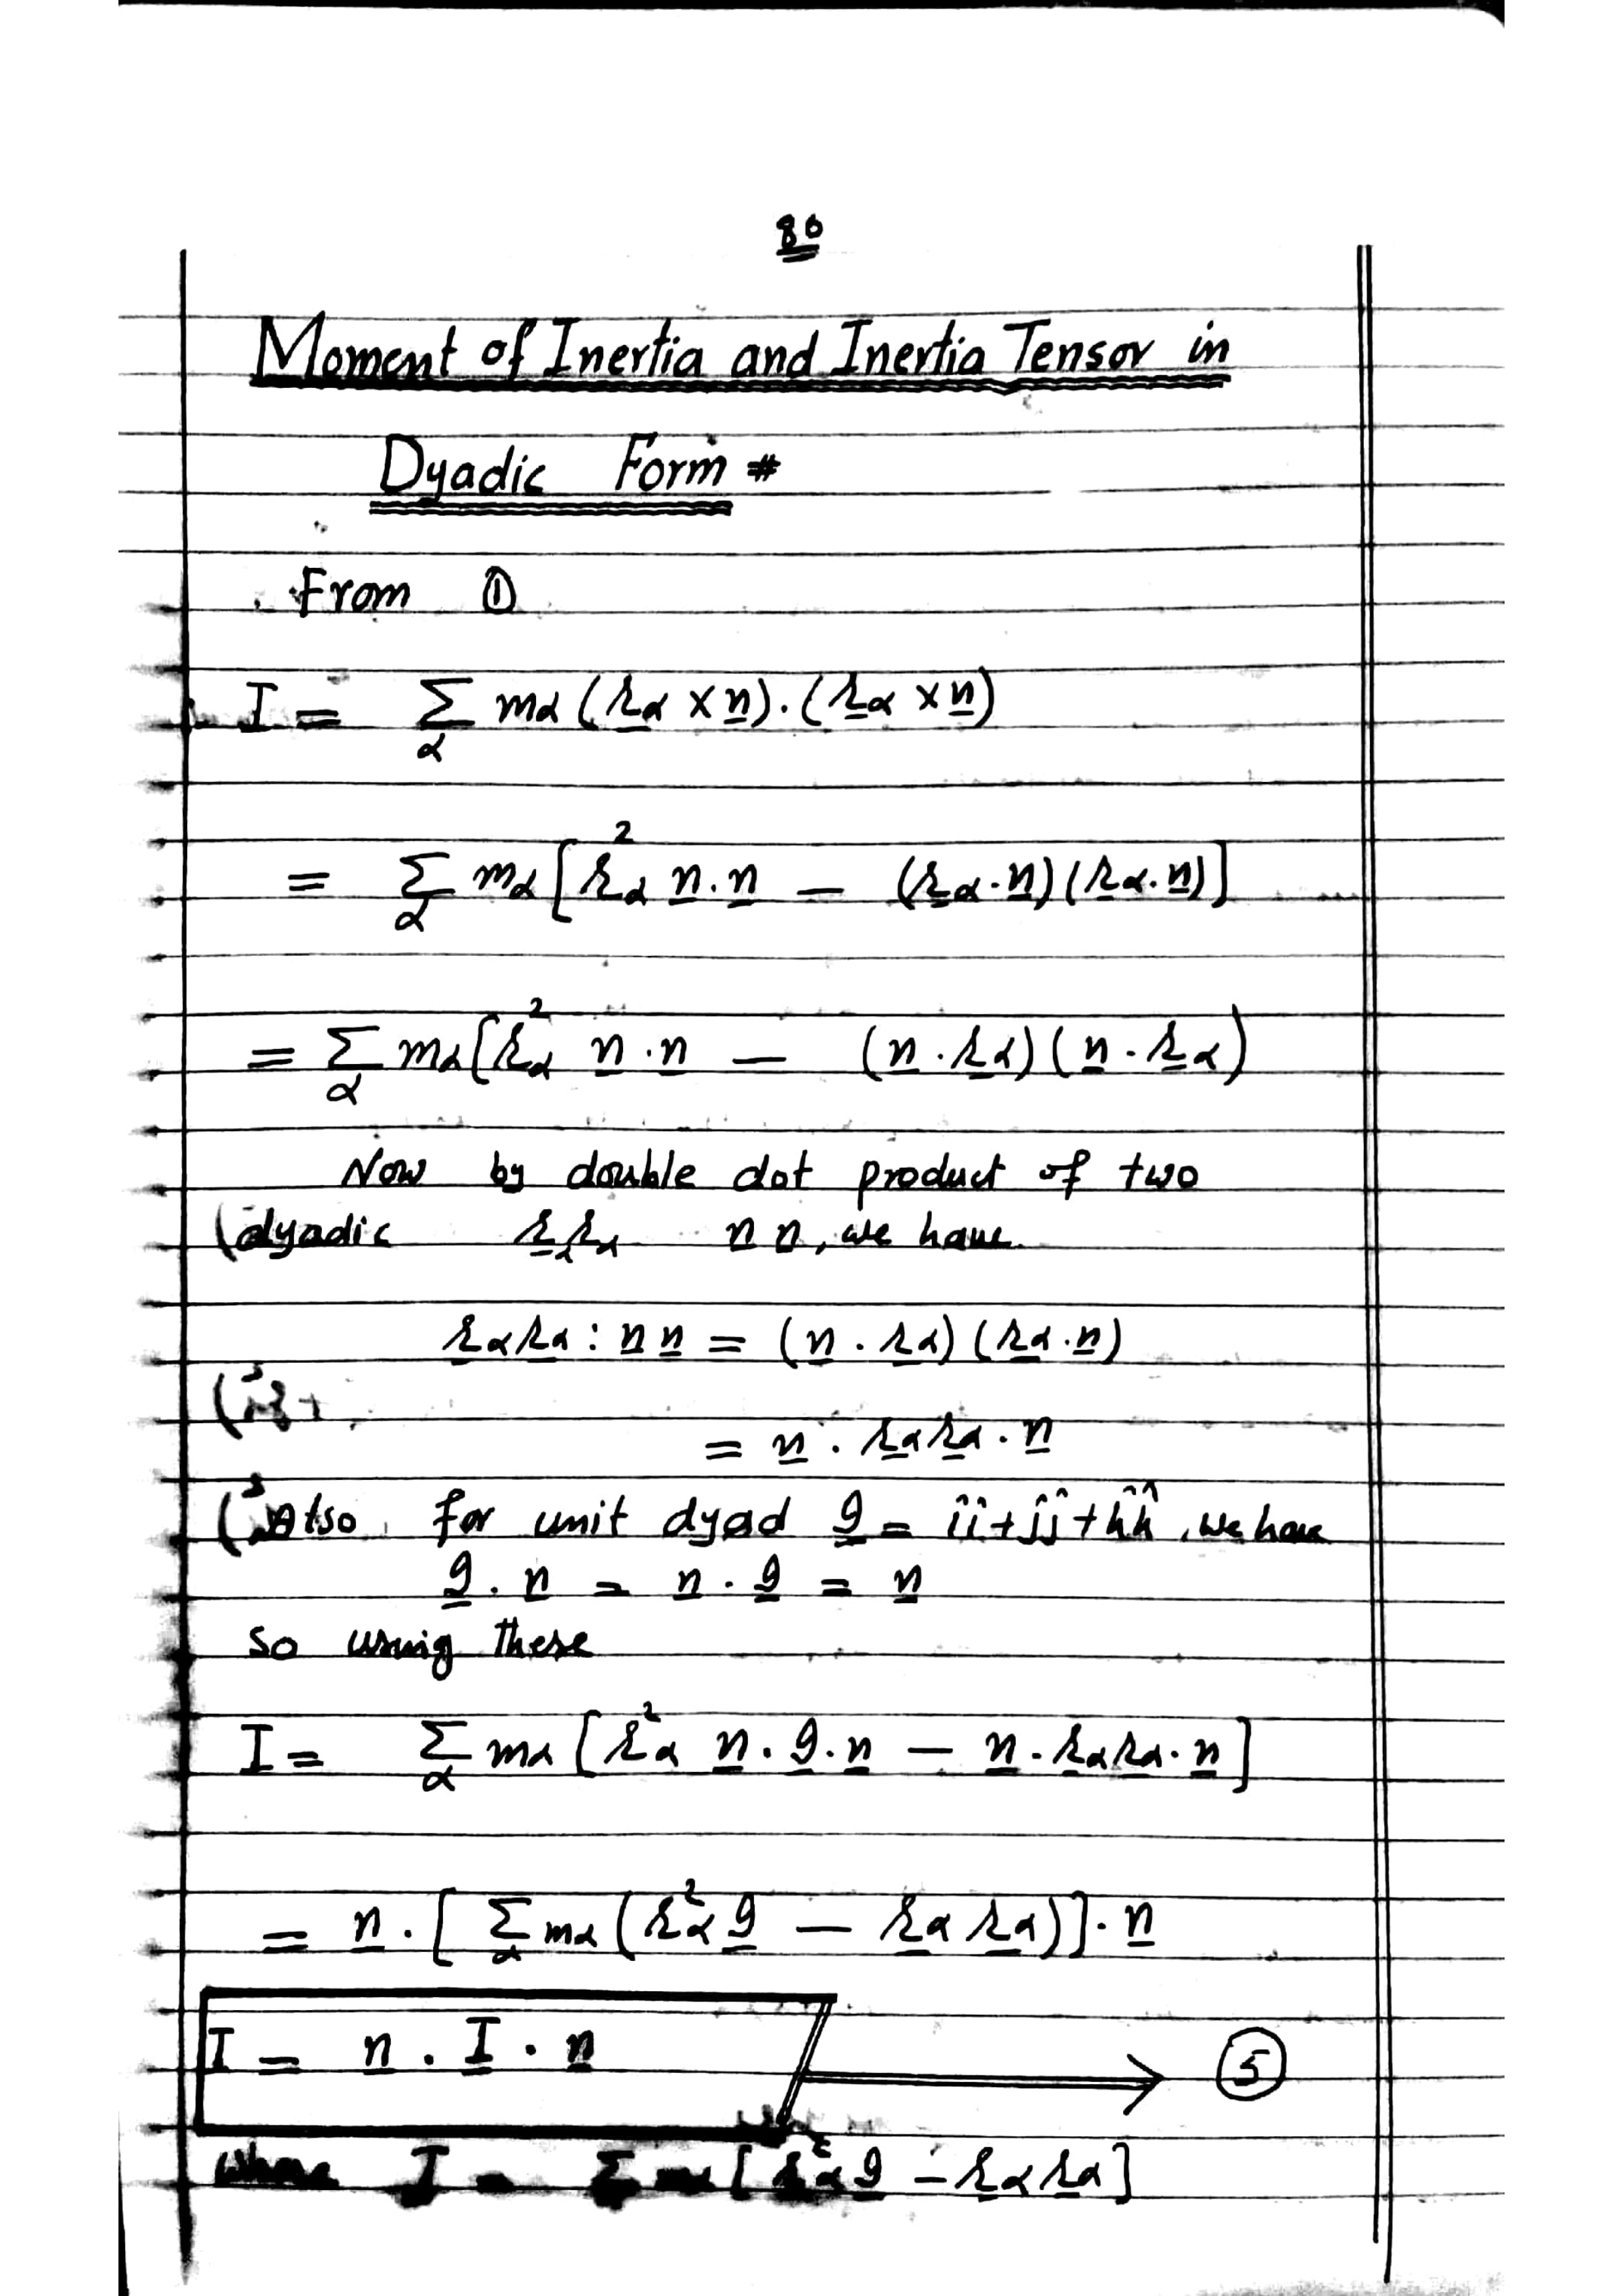 80
Moment of Inertia and Inertia Tensor in
Dyadic Form #
From ①
I = Σ_α mα (r̲α × n̲) . (r̲α × n̲)
= Σ_α mα [r²α n̲ . n̲ — (r̲α . n̲) (r̲α . n̲)]
= Σ_α mα [r²α n̲ . n̲ — (n̲ . r̲α) (n̲ . r̲α)
Now by double dot product of two
(dyadic r̲α r̲α n̲ n̲, we have
r̲α r̲α : n̲ n̲ = (n̲ . r̲α) (r̲α . n̲)
= n̲ . r̲α r̲α . n̲
Also for unit dyad 9̲ = îî + ĵĵ + k̂k̂, we have
9̲ . n̲ = n̲ . 9̲ = n̲
so using these
I = Σ_α mα [r²α n̲ . 9̲ . n̲ — n̲ . r̲α r̲α . n̲]
= n̲ . [Σ_α mα (r²α 9̲ — r̲α r̲α)] . n̲
I = n̲ . I̲ . n̲ → ⑤
where I̲ = Σ mα [r²α 9̲ — r̲α r̲α]